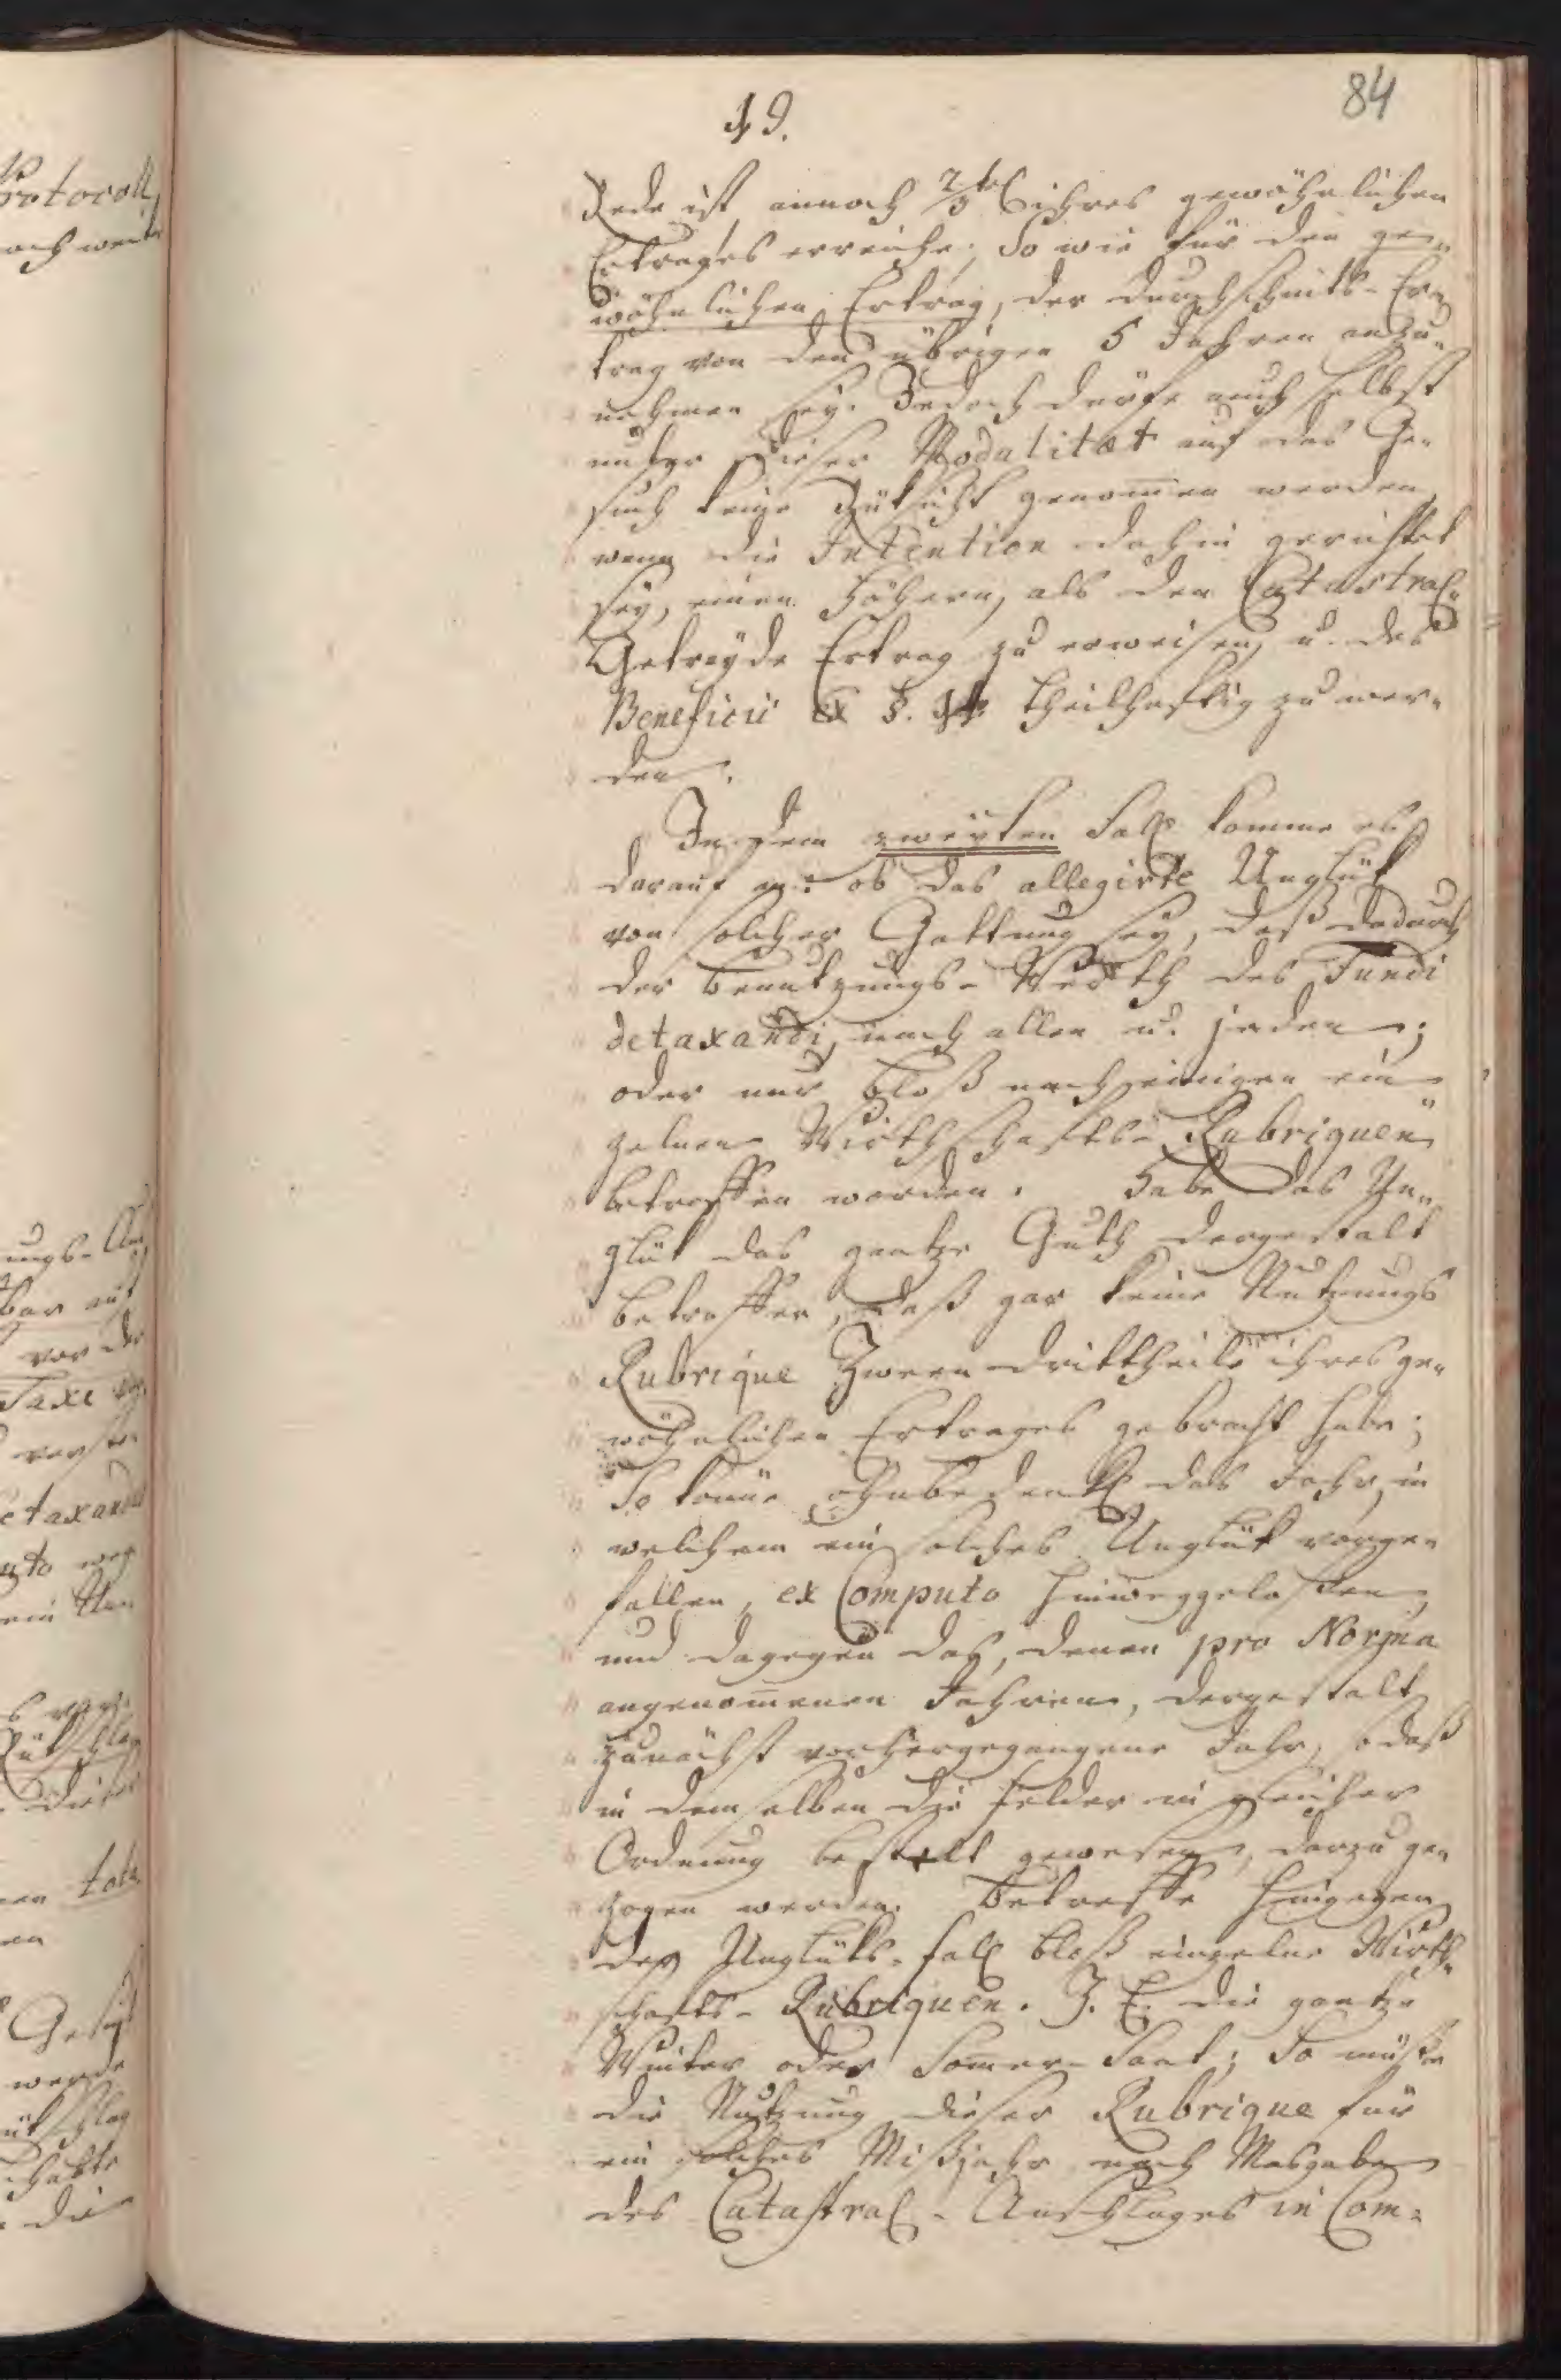 84
19.
Rede ist, annoch 2/3tel ihres gewöhnlichen
Ertrages erreiche; So wie für den ge„
wöhnlichen Ertrag, der Durchschnitts-Er„
trag von den übrigen 5 Jahren anzu„
nehmen sey. Jedoch dürfe auch selbst
unter dieser Modalitæt auf das Ge„
such keine Rüksicht genom̅en werden,
wenn die Intention dahin gerichtet
sey, einen höhern, als den Catastral„
Getreyde Ertrag zu erweisen, u. des
Beneficii ex §. theilhaftig zu wer„
den.
In dem zweyten Fall komme es
darauf an: ob das allegirte Unglük
von solcher Gattung sey, daß dadurch
der Benutzungs-Werth des Fundi
detaxandi, nach allen u. jeden;
oder nur bloß nach einigen ein„
zelnen Wirthschafts-Rubriquen
betroffen worden. Habe das Un„
glük das gantze Guth dergestalt
betroffen, daß gar keine Nutzungs
Rubrique Zween Drittheile ihres ge„
wöhnlichen Ertrages gebracht habe;
So könne ohnbedenkl das Jahr, in
welchem ein solches Unglük vorge„
fallen, ex Computo hinweggelassen,
und dagegen das, denen pro Norma
angenom̅enen Jahren, dergestalt
zunächst vorhergegangene Jahr, daß
in demselben die Felder in gleicher
Ordnung bestellt gewesen, darzu ge„
zogen werden. Betreffe hingegen
der Unglüks-Fall bloß einzelne Wirth„
schafts-Rubriquen. Z. E. die gantze
Winter oder Som̅er-Saat; So müsse
die Nutzung dieser Rubrique für
ein solches Mißjahr nach Masgabe
des Catastral-Anschlages in Com„